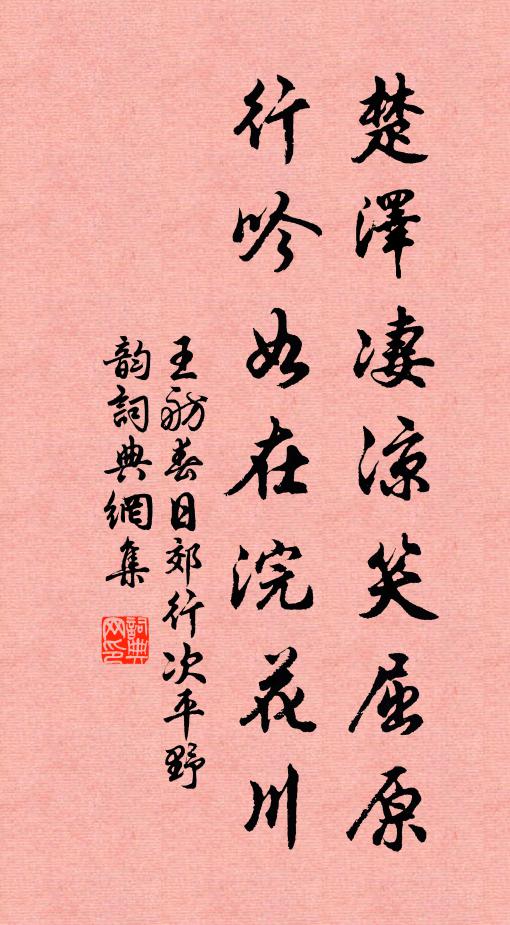 楚澤淒涼笑屈原
行吟如在浣花川
王舫春日郊行次平野
韵詞典網集
詞典網印